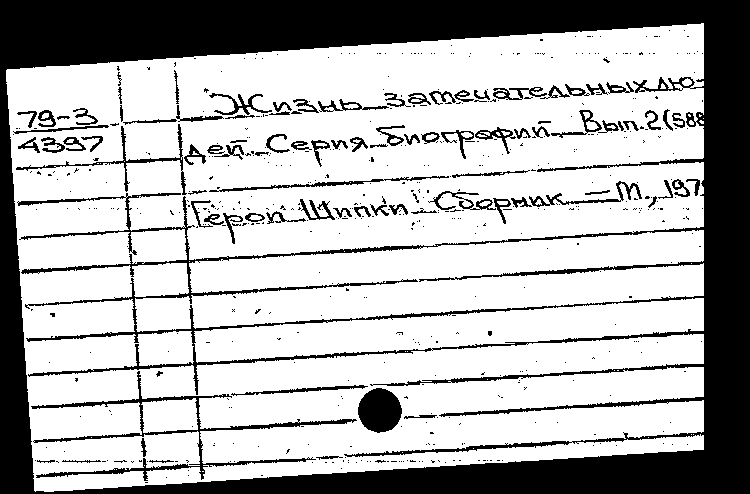 79-3
4397
Жизнь замечательных лю-
дей. Серия биографий. Вып.2(588
Герои Шипки. Сборник. — М., 1979